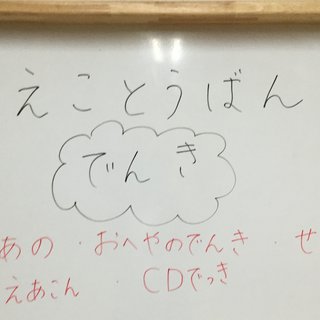 えことうばん
でんき
あの・おへやのでんき・せ
えあこん・CDでっき